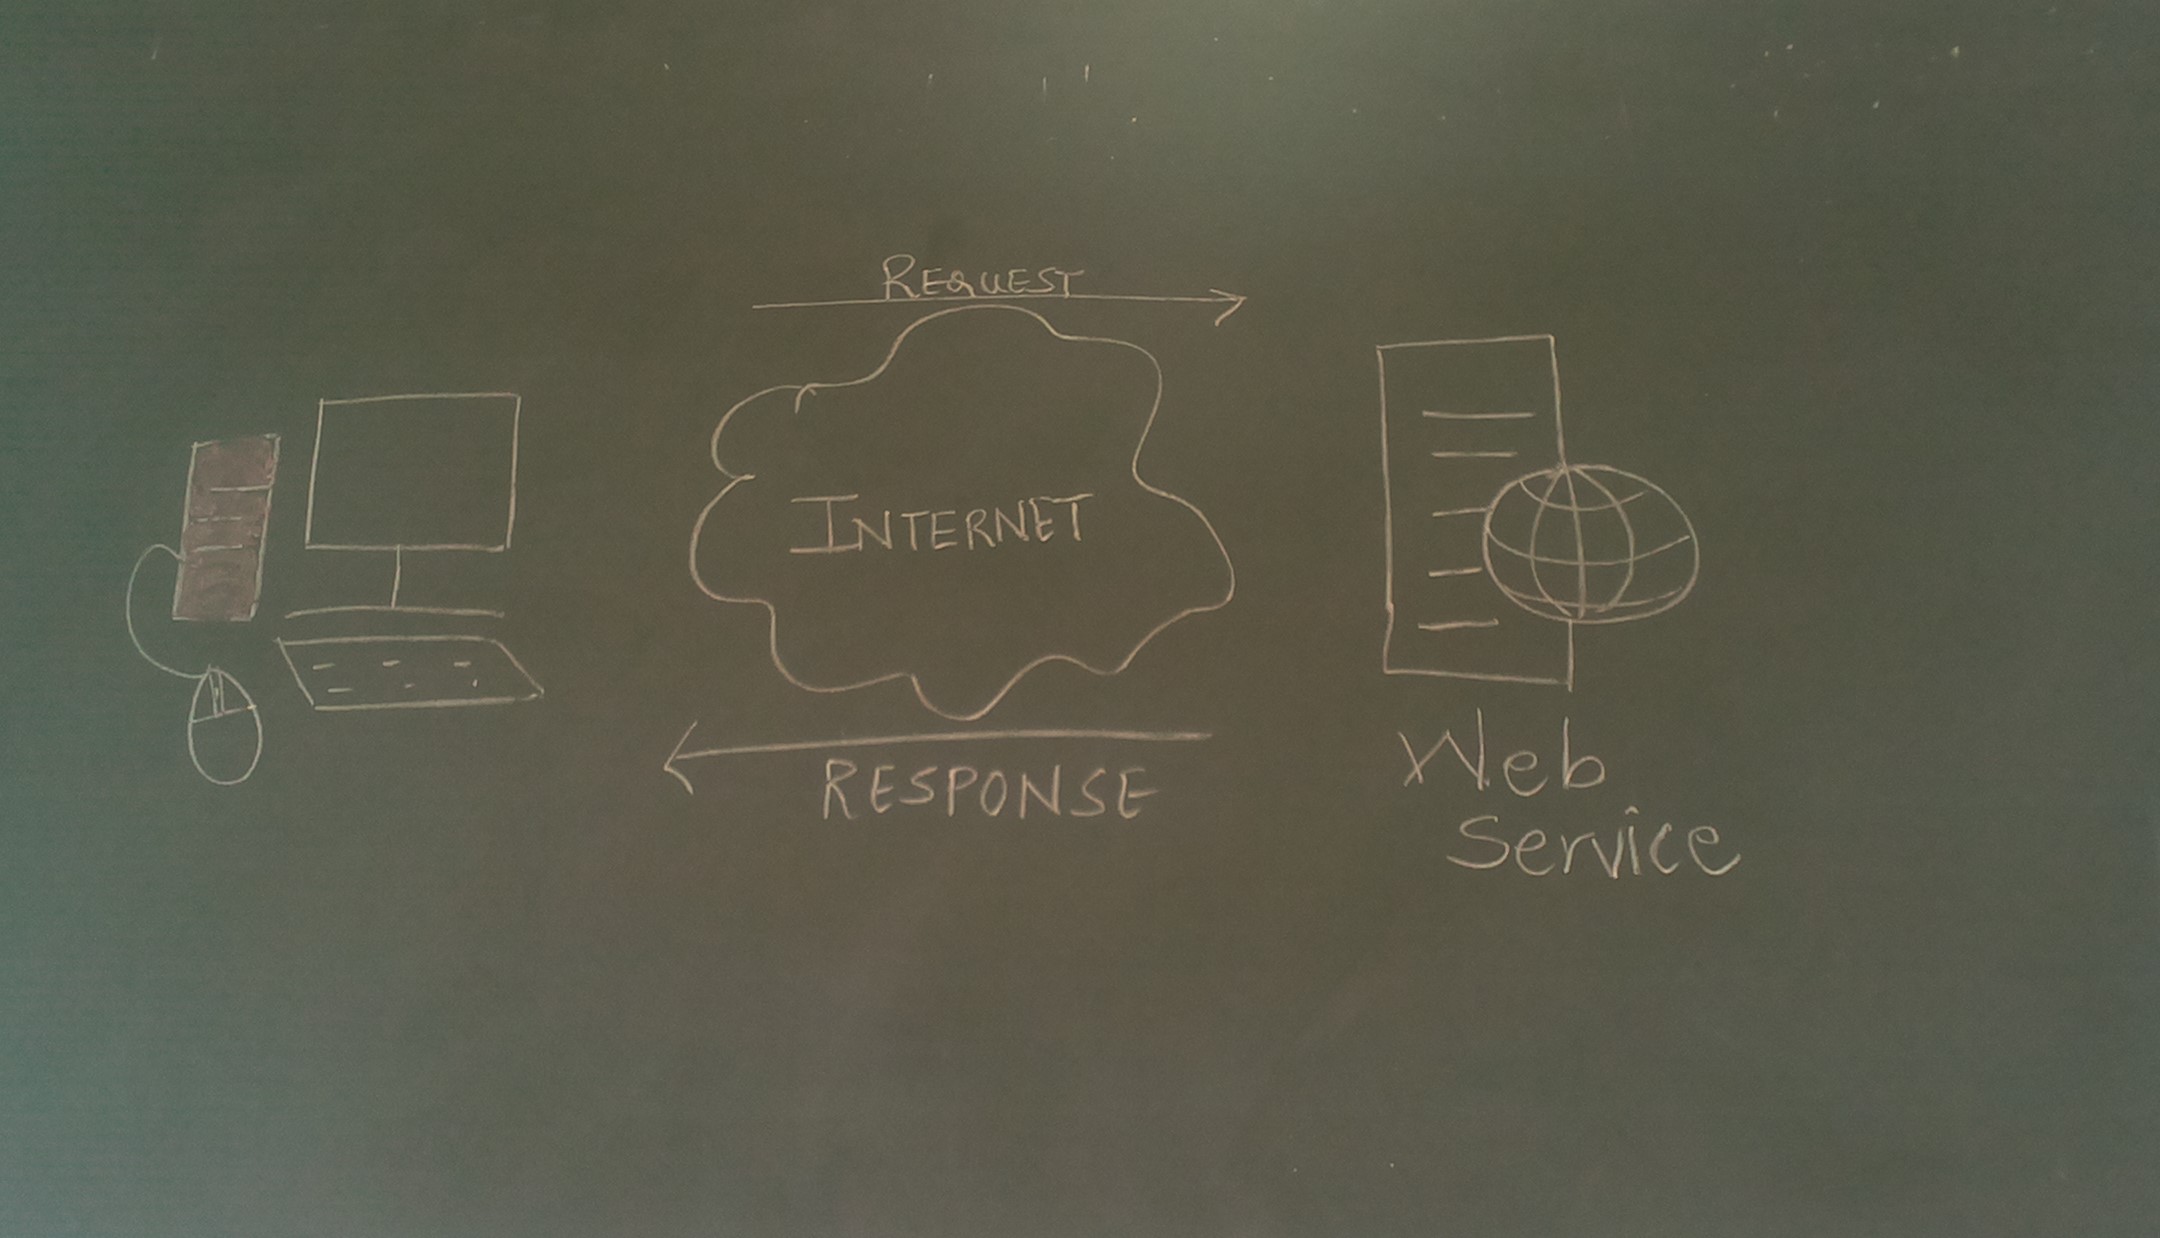 REQUEST
INTERNET
RESPONSE
Web
Service